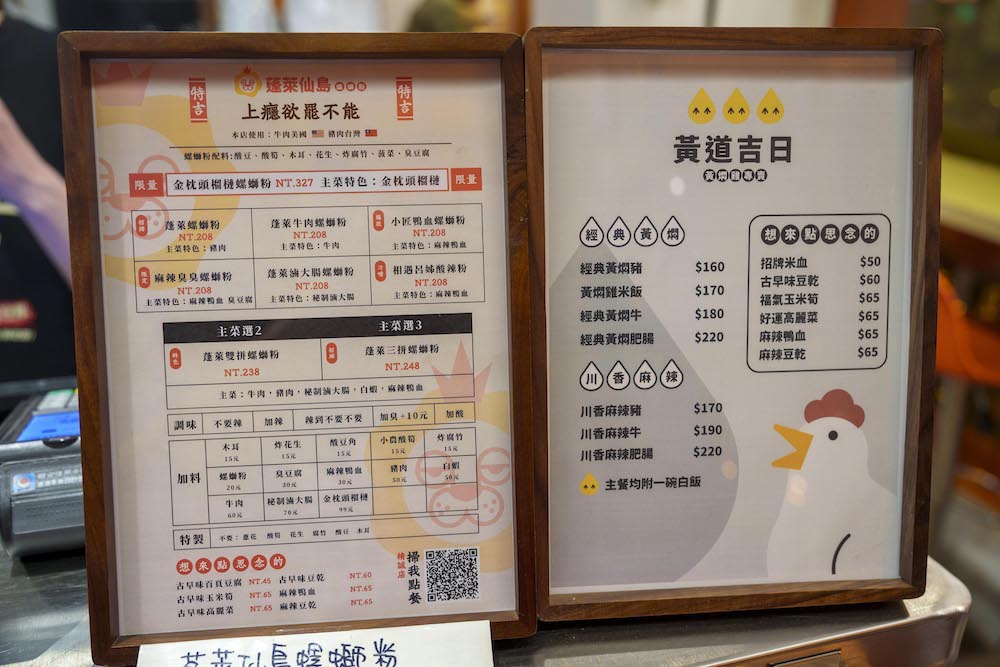 特吉
蓬萊仙島 螺螄粉
特吉
上癮欲罷不能
本店使用：牛肉美國 豬肉台灣
螺螄粉配料:酸豆、酸筍、木耳、花生、炸腐竹、菠菜、臭豆腐
限量 金枕頭榴槤螺螄粉 NT.327 主菜特色：金枕頭榴槤 限量
招牌 蓬萊螺螄粉 NT.208 主菜特色：豬肉
蓬萊牛肉螺螄粉 NT.208 主菜特色：牛肉
小匠鴨血螺螄粉 NT.208 主菜特色：麻辣鴨血
限定 麻辣臭臭螺螄粉 NT.208 主菜特色：麻辣鴨血 臭豆腐
蓬萊滷大腸螺螄粉 NT.208 主菜特色：秘制滷大腸
相遇呂姊酸辣粉 NT.208 主菜特色：麻辣鴨血
主菜選2 主菜選3
特色 蓬萊雙拼螺螄粉 NT.238
招牌 蓬萊三拼螺螄粉 NT.248
主菜：牛肉，豬肉，秘制滷大腸，白蝦，麻辣鴨血
調味 不要辣 加辣 辣到不要不要 加臭+10元 加酸
加料
木耳 15元 炸花生 15元 酸豆角 15元 小農酸筍 15元 炸腐竹 15元
螺螄粉 20元 臭豆腐 30元 麻辣鴨血 30元 豬肉 50元 白蝦 50元
牛肉 60元 秘制滷大腸 70元 金枕頭榴槤 99元
特製 不要：蔥花 酸筍 花生 腐竹 酸豆 木耳
想來點思念的
古早味百頁豆腐 NT.45 古早味豆乾 NT.60
古早味玉米筍 NT.65 麻辣鴨血 NT.65
古早味高麗菜 NT.65 麻辣豆乾 NT.65
精誠店
掃我點餐
蓬萊仙島螺螄粉
黃道吉日
黃燜雞專賣
經典黃燜
經典黃燜豬 $160
黃燜雞米飯 $170
經典黃燜牛 $180
經典黃燜肥腸 $220
川香麻辣
川香麻辣豬 $170
川香麻辣牛 $190
川香麻辣肥腸 $220
主餐均附一碗白飯
想來點思念的
招牌米血 $50
古早味豆乾 $60
福氣玉米筍 $65
好運高麗菜 $65
麻辣鴨血 $65
麻辣豆乾 $65